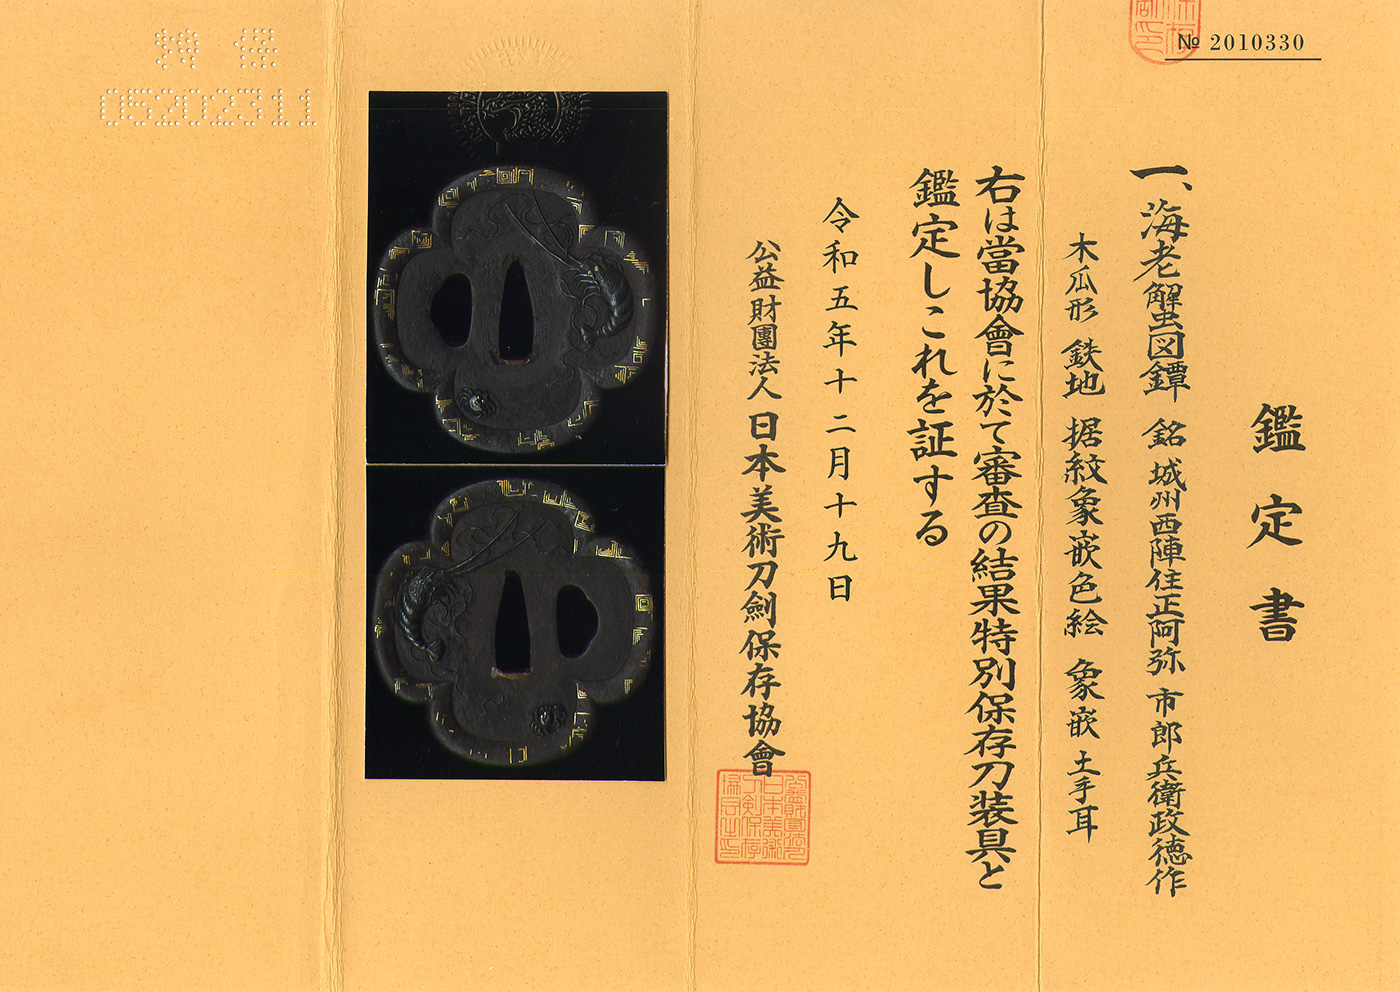 № 2010330
鑑定書
一、海老蟹図鐔 銘 城州西陣住正阿弥 市郎兵衛政徳作
木瓜形 鉄地 据紋象嵌色絵 象嵌 土手耳
右は當協會に於て審査の結果特別保存刀装具と
鑑定しこれを証する
令和五年十二月十九日
公益財團法人 日本美術刀劍保存協會
05202311